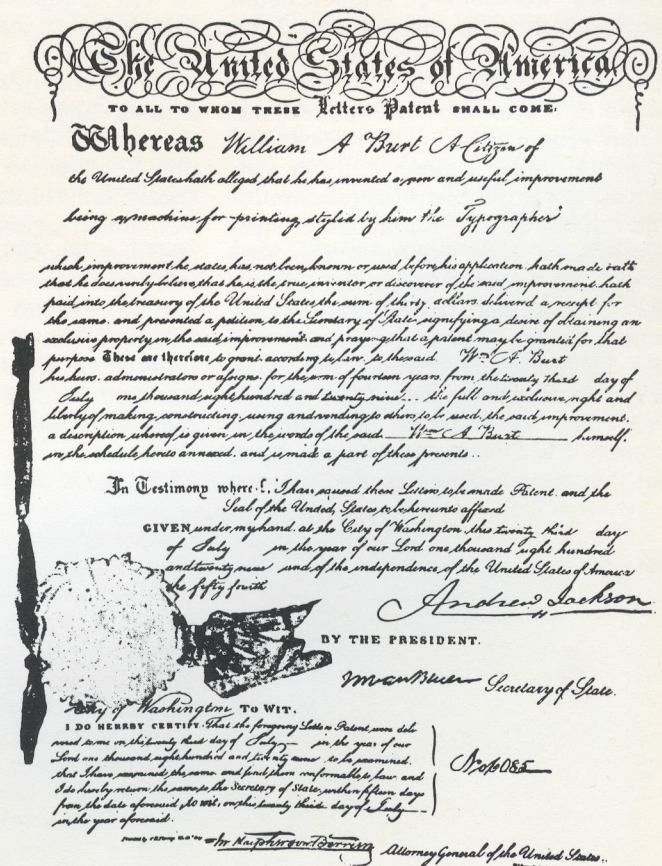 The United States of America
TO ALL TO WHOM THESE Letters Patent SHALL COME.
Whereas William A Burt A Citizen of
the United States hath alleged that he has invented a new and useful improvement
being a machine for printing, styled by him the Typographer
which improvement he states has not been known or used before his application hath made oath
that he does verily believe that he is the true inventor or discoverer of the said improvement hath
paid into the treasury of the United States the sum of thirty dollars delivered a receipt for
the same and presented a petition to the Secretary of State signifying a desire of obtaining an
exclusive property in the said improvement and praying that a patent may be granted for that
purpose These are therefore to grant according to law to the said Wm A. Burt
his heirs administrators or assigns for the term of fourteen years from the twenty third day of
July one thousand eight hundred and twenty nine... the full and exclusive right and
liberty of making constructing using and vending to others to be used the said improvement,
a description whereof is given in the words of the said Wm A Burt himself
in the schedule hereto annexed and is made a part of these presents..
In Testimony I have caused these Letters to be made Patent and the
Seal of the United States to be hereunto affixed
GIVEN under my hand at the City of Washington this twenty third day
of July in the year of our Lord one thousand eight hundred
and twenty nine and of the independence of the United States of America
the fifty fourth
Andrew Jackson
BY THE PRESIDENT.
M van Buren Secretary of State.
City of Washington TO WIT.
I DO HEREBY CERTIFY That the foregoing Letters Patent were deli
vered to me on the twenty third day of July in the year of our
Lord one thousand eight hundred and twenty nine to be examined
that I have examined the same and find them conformable to law and
I do hereby return the same to the Secretary of State within fifteen days
from the date aforesaid to wit on this twenty third day of July
in the year aforesaid
Attorney General of the United States..